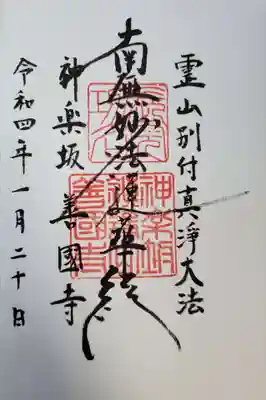 霊山別付真淨大法
南無妙法蓮華経
神楽坂 善國寺
令和四年一月二十日